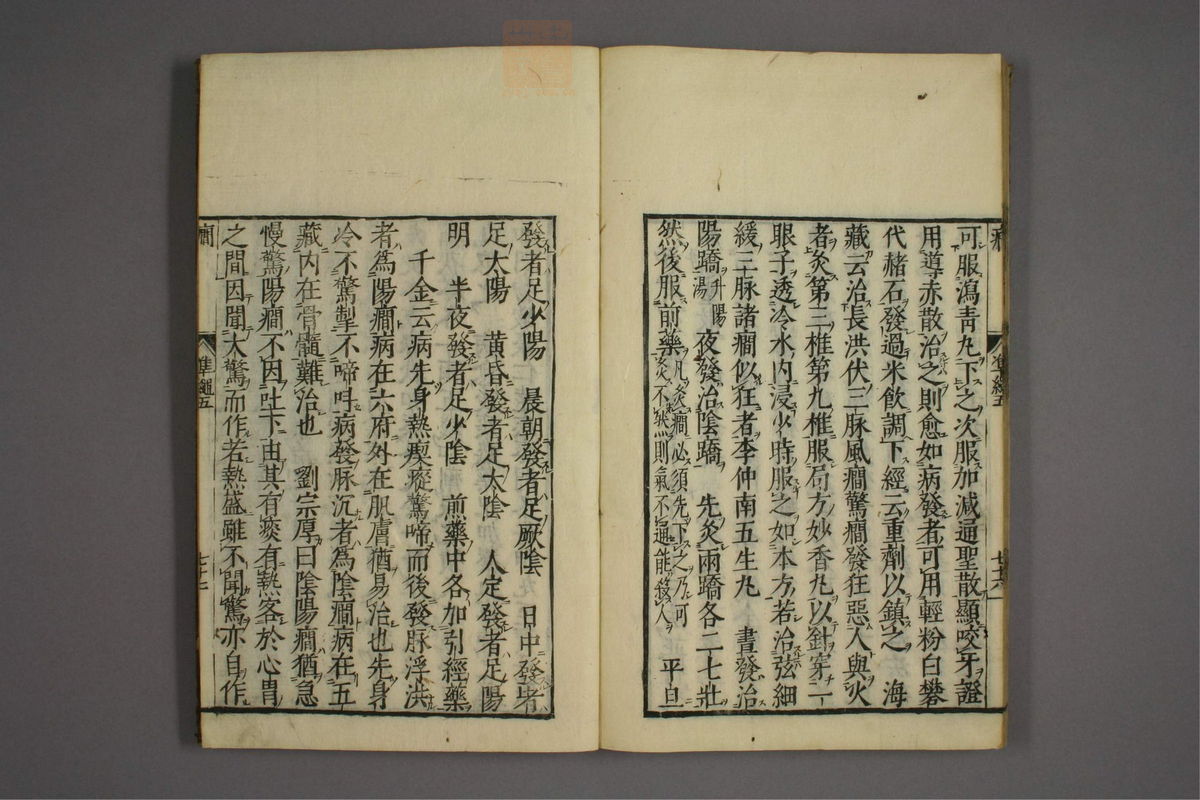 可服瀉青丸下之次服加減通聖散顯咬牙證
用導赤散治之則愈如病發者可用輕粉白礬
代赭石發過米飲調下經云重劑以鎮之　海
藏云治長洪伏三脉風癎驚癎發狂惡人與火
者灸第三椎第九椎服局方妙香丸以針穿一
眼子透冷水内浸少時服之如本方若治弦細
緩三脉諸癎似狂者李仲南五生丸　晝發治
陽蹻升陽湯　夜發治陰蹻　先灸兩蹻各二七壯
然後服前藥凡灸癎必須先下之乃可灸不然則氣不通能殺人　平旦
發者足少陽　晨朝發者足厥陰　日中發者
足太陽　黄昏發者足太陰　人定發者足陽
明　半夜發者足少陰　煎藥中各加引經藥
千金云病先身熱瘈瘲驚啼而後發脉浮洪
者爲陽癎病在六府外在肌膚猶易治也先身
冷不驚掣不啼呼病發脉沉者爲陰癎病在五
藏内在骨髓難治也　劉宗厚曰陰陽癎猶急
慢驚陽癎不因吐下由其有痰有熱客於心胃
之間因聞大驚而作若熱盛雖不聞驚亦自作
準繩五